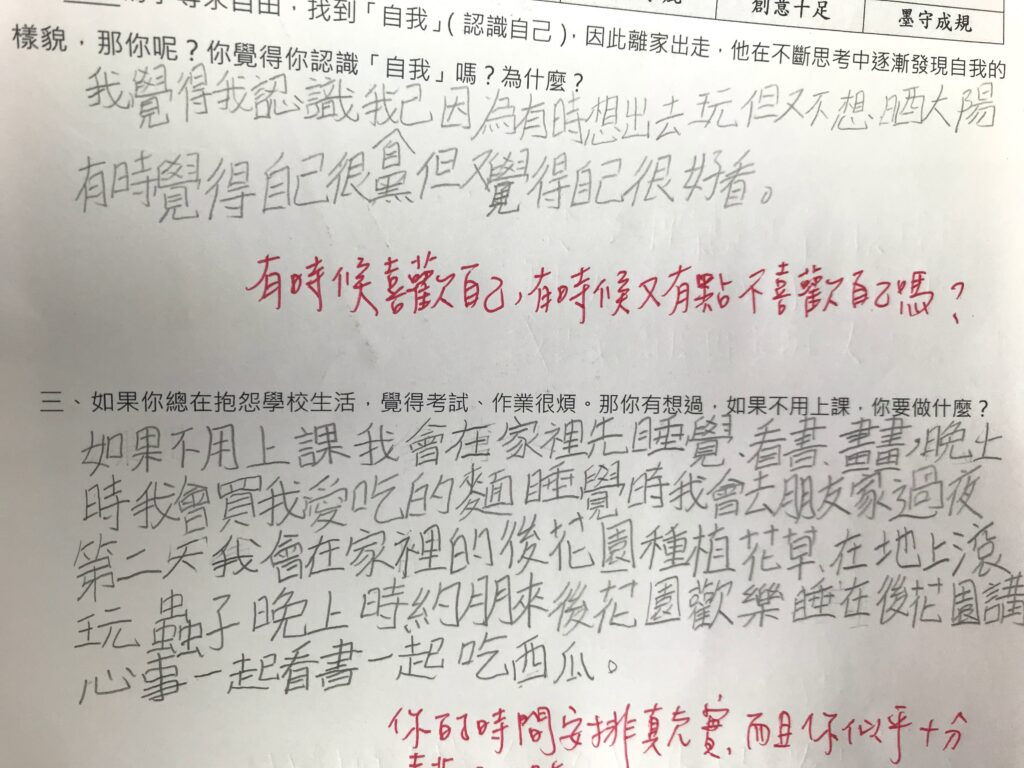 創意十足
墨守成規
找到「自我」(認識自己)，因此離家出走，他在不斷思考中逐漸發現自我的
樣貌，那你呢？你覺得你認識「自我」嗎？為什麼？
我覺得我認識我己因為有時想出去玩但又不想晒大陽
有時覺得自己很黑但又覺得自己很好看。
有時候喜歡自己，有時候又有點不喜歡自己嗎？
三、如果你總在抱怨學校生活，覺得考試、作業很煩。那你有想過，如果不用上課，你要做什麼？
如果不用上課我會在家裡先睡覺、看書、畫畫，晚上
時我會買我愛吃的麵睡覺時我會去朋友家過夜
第二天我會在家裡的後花園種植花草、在地上滾
玩蟲子晚上時約朋來後花園歡樂睡在後花園講
心事一起看書一起吃西瓜。
你的時間安排真充實，而且你似乎十分